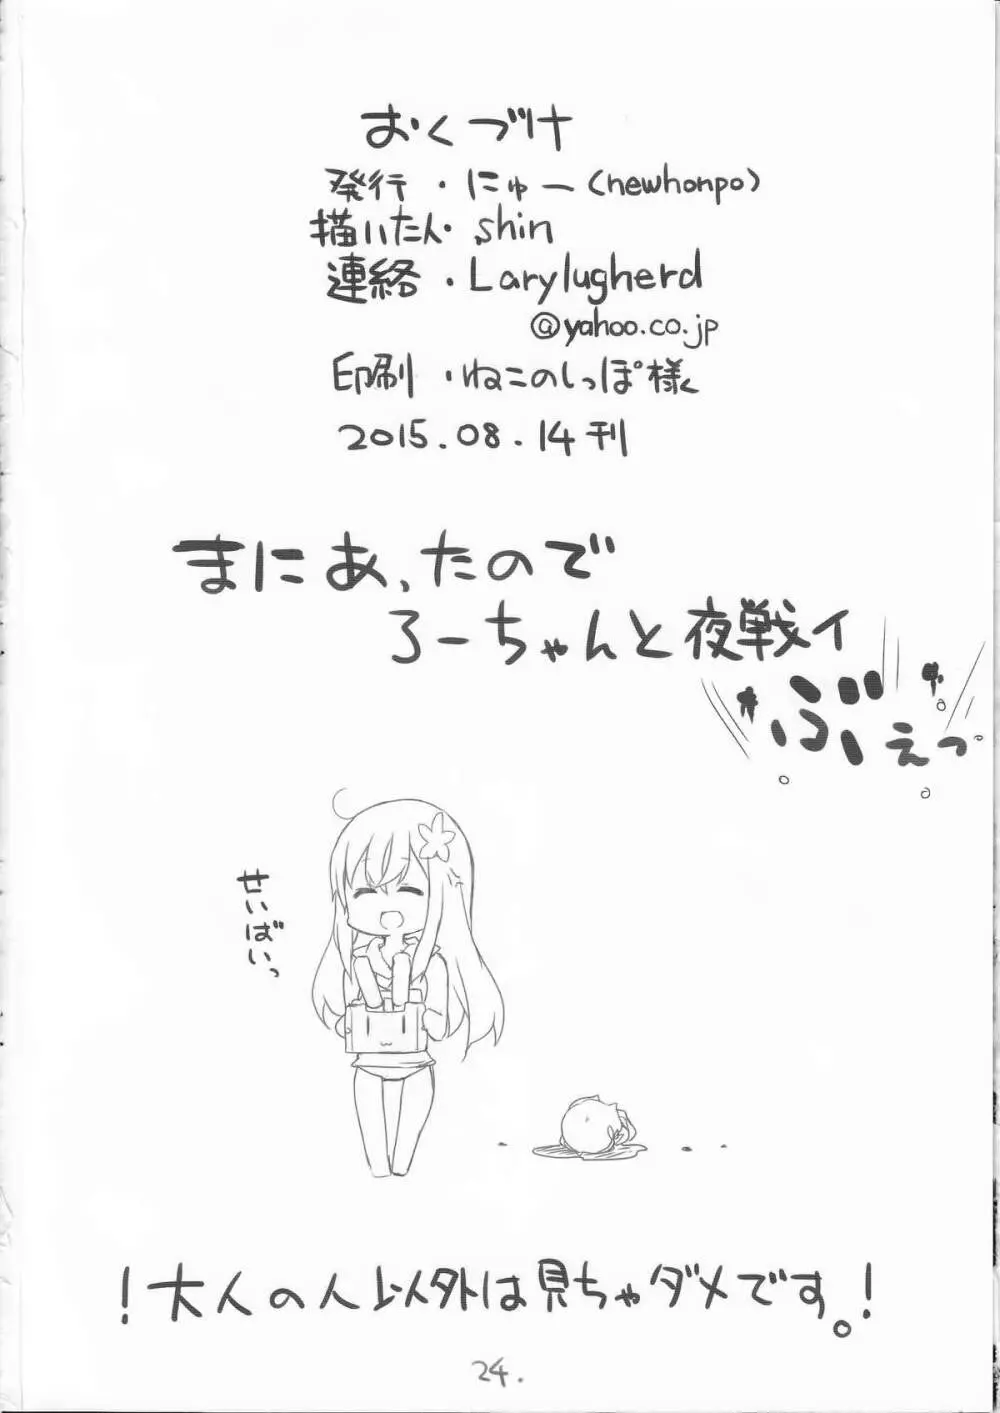 おくづけ
発行・にゅー(newhonpo)
描いたん・shin
連絡・Larylugherd
@yahoo.co.jp
印刷・ねこのしっぽ様
2015.08.14刊
まにあったので
ろーちゃんと夜戦イ
ぶぇっ
せいばいっ
！大人の人以外は見ちゃダメです。！
24.